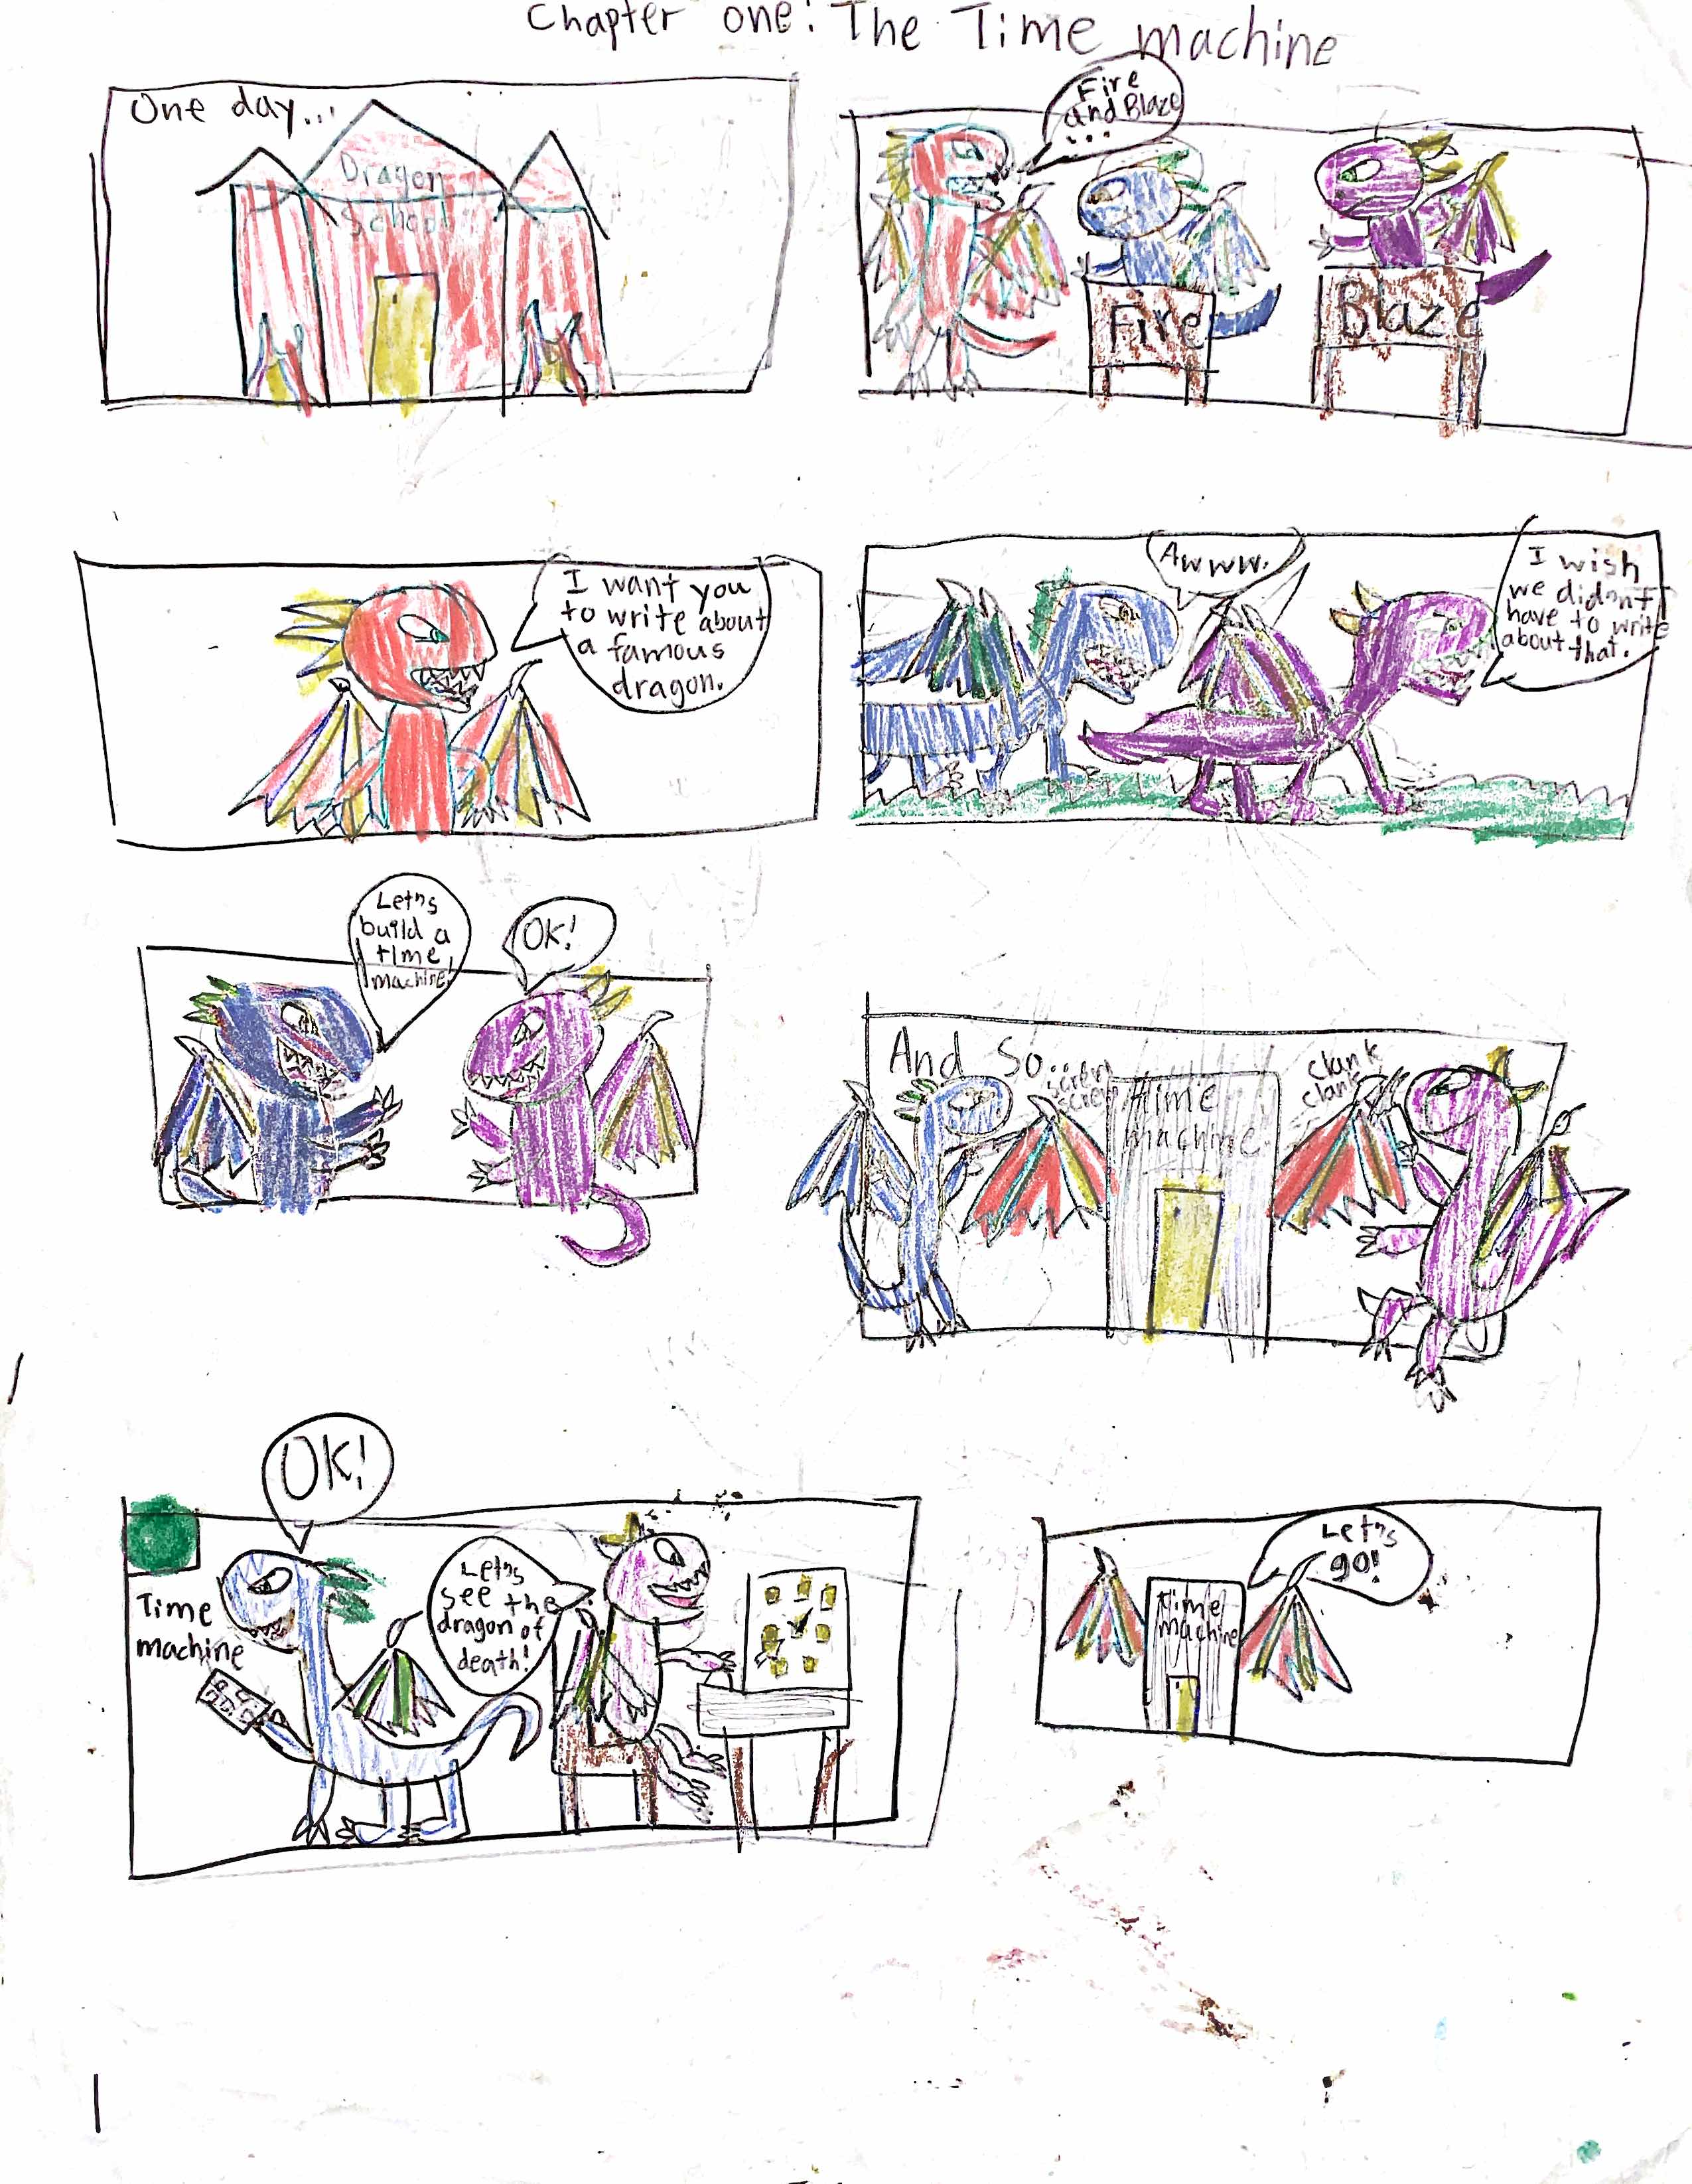 Chapter one: The Time machine
One day...
Dragon
School
Fire
and Blaze
...
Fire
Blaze
I want you
to write about
a famous
dragon.
Awww.
I wish
we didn't
have to write
about that.
Let's
build a
time
machine!
OK!
And so...
screw
clank
clank
time
machine
OK!
Time
machine
Let's
see the
dragon of
death!
Let's
go!
time
machine